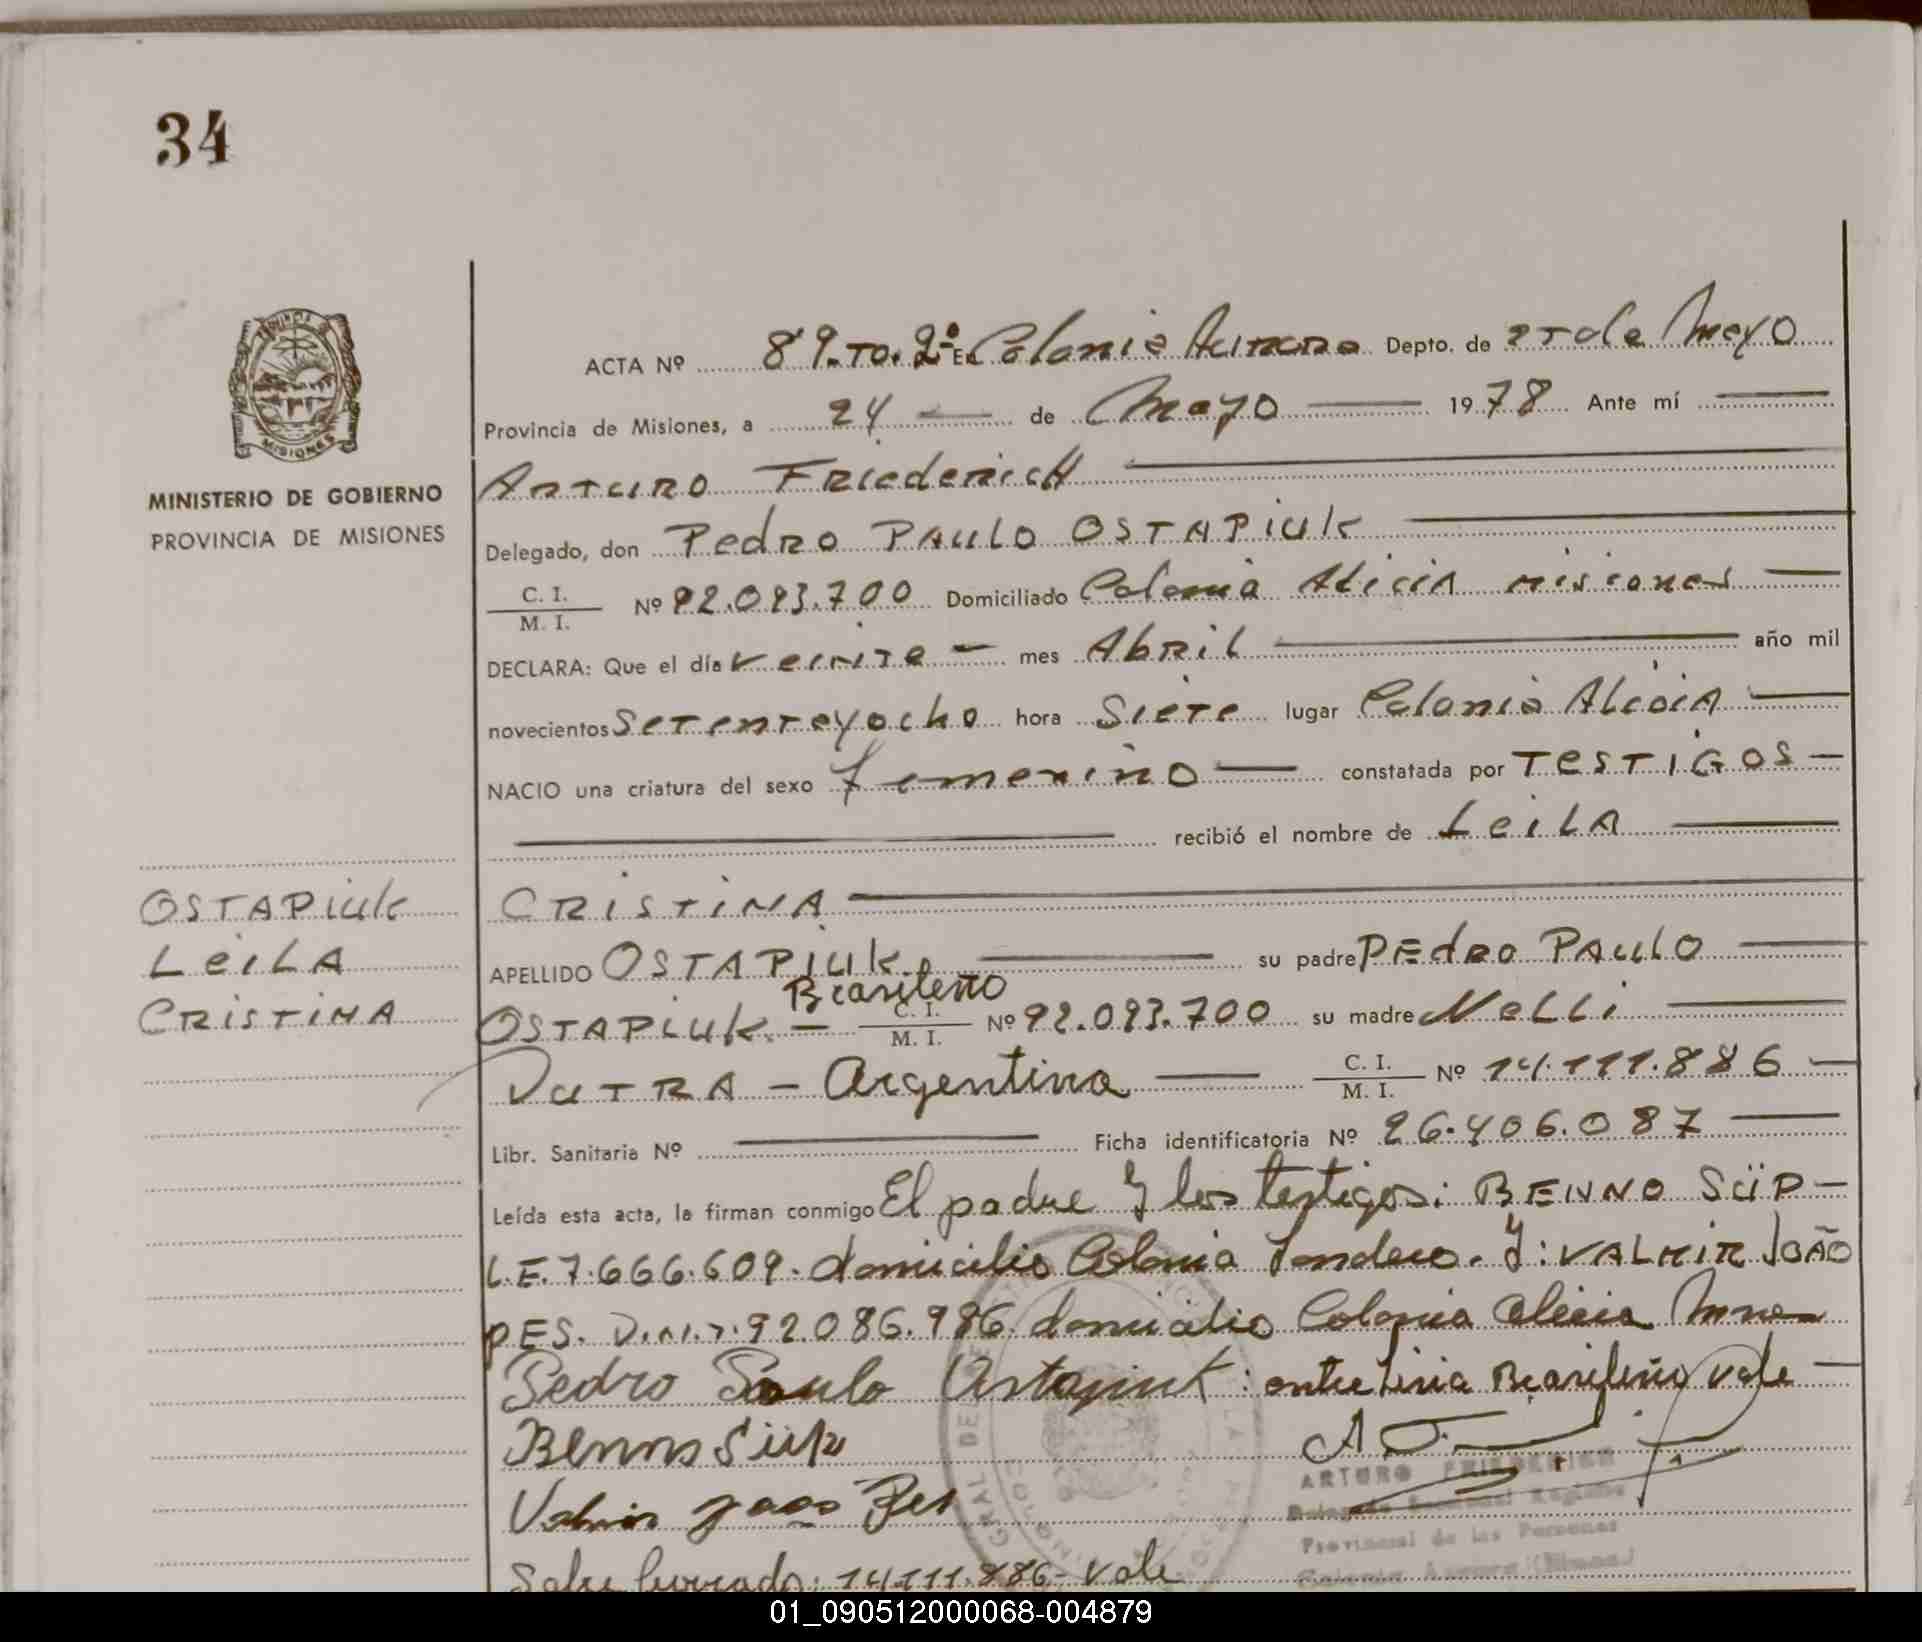 34
PROVINCIA DE
MISIONES
MINISTERIO DE GOBIERNO
PROVINCIA DE MISIONES
ACTA Nº 89.TO.2º En Colonia Aurora Depto. de 25 de Mayo
Provincia de Misiones, a 24 — de Mayo — 1978 Ante mí —
Arturo Friederich —
Delegado, don Pedro Paulo OSTAPiuk —
C. I.
M. I. Nº 92.093.700 Domiciliado Colonia Alicia Misiones —
DECLARA: Que el día veinte — mes Abril — año mil
novecientos setenteyocho hora Siete lugar Colonia Alicia —
NACIO una criatura del sexo femenino — constatada por TESTIGOS —
— recibió el nombre de Leila —
CRISTINA —
OSTAPiuk
LeiLA
CRISTINA
APELLIDO OSTAPiuk. — su padre PEdRO PAULO —
Brasileño
OSTAPiuk. — C. I.
M. I. Nº 92.093.700 su madre NeLLi —
DUTRA — Argentina — C. I.
M. I. Nº 14.111.886 —
Libr. Sanitaria Nº — Ficha identificatoria Nº 26.406.087 —
Leída esta acta, la firman conmigo El padre y los testigos: BENNO SÜP —
L.E. 7.666.609. domicilio Colonia Londero. y: VALMIR JOÃO
PES. D.N.I. 92.086.986. domicilio Colonia Alicia Mnes
Pedro Paulo Ostapiuk: entre linia Brasileño vale —
Benno Süp
Valmir joao Pes
ARTURO FRIEDERICH
Provincial de las Personas
Colonia Aurora (Mnes.)
Sobre borrado: 14.111.886- vale
01_090512000068-004879